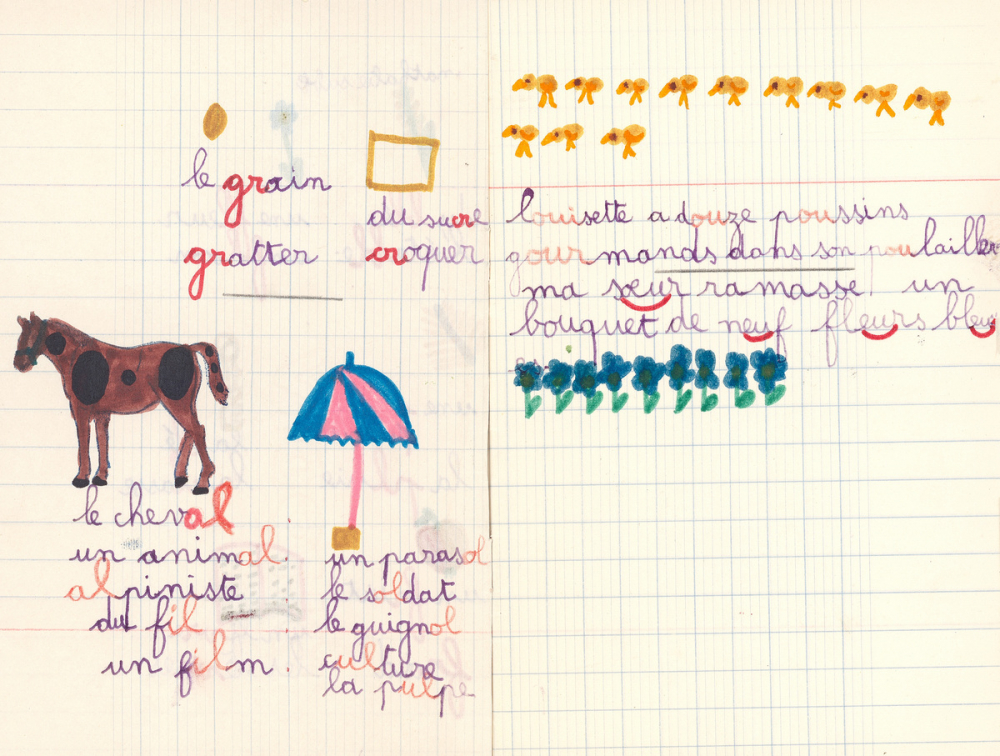 le grain
du sucre
gratter
croquer
le cheval
un animal.
alpiniste
du fil
un film.
un parasol
le soldat
le guignol
culture
la pulpe
louisette a douze poussins
gourmands dans son poulailler
ma sœur ramasse un
bouquet de neuf fleurs bleu
es